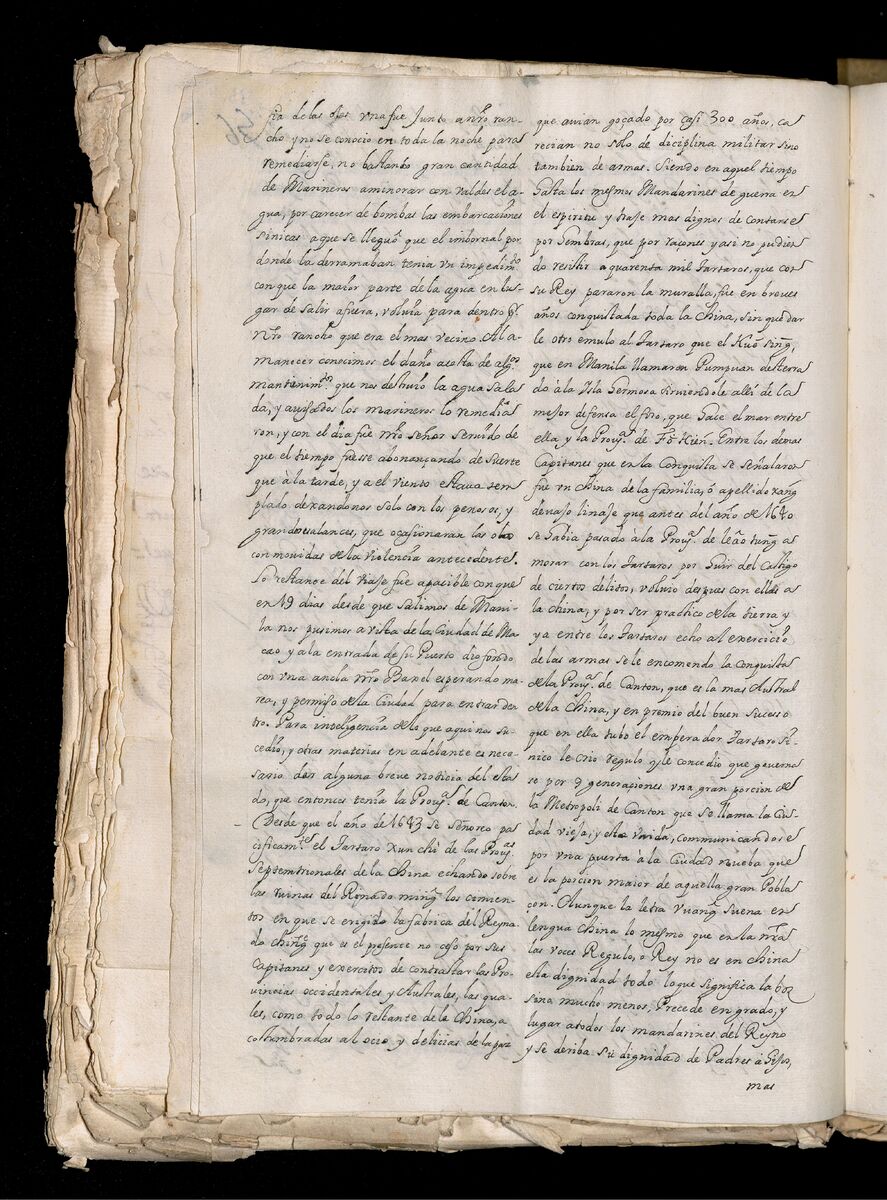 ria de las ojos vna fue Junto a nro ran-
cho y no se conocio en toda la noche para
remediarse, no bastando gran cantidad
de Marineros aminorar con valdes el a-
gua, por carecer de bombas las embarcaciones
sinicas a que se lleguó que el imbornal por
donde la derramaban tenia vn impedimto
con que la maior parte de la agua en lu-
gar de salir afuera, voluia para dentro pr
nro rancho que era el mas vecino. Al a-
manecer conocimos el daño a costa de algos
mantenimtos que nos destruió la agua sala
da, y auisados los marineros lo remedia
ron, y con el dia fue nro señor seruido de
que el tiempo fuesse abonançando de suerte
que à la tarde, ya el viento estaua tem
plado dexandonos solo con los penosos, y
grandes balances, que ocasionaran las olas
conmouidas de la violencia antecedente.
Lo restante del viaje fue apacible con que
en 19 dias desde que salimos de Mani-
la nos pusimos a vista de la Ciudad de Ma
cao y a la entrada de su Puerto dio fondo
con vna ancla nro Banel esperando ma-
rea, y permiso de la Ciudad para entrar den
tro. Para inteligencia de lo que aqui nos su
cedio, y otras materias en adelante es nece-
sario dar alguna breve noticia del esta
do, que entonces tenia la Prouª. de Canton.
Desde que el año de 1643 se señoreo pa
cificamte el Tartaro Xunchì de las Prouas
Septemtrionales de la China echando sobre
las ruinas del Reinado ming los cimien-
tos en que se erigido la fabrica del Reyna
do chīng que es el presente no ceso por sus
Capitanes y exercitos de contrastar las Pro
uincias occidentales y Australes, las qua-
les, como todo lo restante de la China, a
costumbradas al ocio y delicias de la paz
que auian goçado por casi 300 años, ca
recian no solo de diciplina militar sino
tambien de armas. Siendo en aquel tiempo
hasta los mesmos Mandarines de guerra en
el espiritu y traje mas dignos de contarse
por hembras, que por varones y asi no pudien
do resistir a quarenta mil Tartaros, que con
su Rey pararon la muralla, fue en breues
años conquistada toda la China, sin quedar
le otro emulo al Tartaro que el Kuē sing,
que en Manila llamaron Pumpuan desterra
do à la Isla hermosa siruiendole alli de la
mejor defensa el foso, que hace el mar entre
ella, y la Prouª. de Fō Kien. Entre los demas
Capitanes que en la Conquista se señalaron
fue vn China de la familia, ó apellido xang
de vajo linaje que antes del año de 1640
se habia pasado à la Prouª. de leāo tung a
morar con los Tartaros por huir del Castigo
de ciertos delitos, voluio despues con ellos a
la China, y por ser practico de la tierra y
ya entre los Tartaros echo al exercicio
de las armas se le encomendo la conquista
de la Prouª. de Canton, que es la mas Austral
de la China, y en premio del buen Sucesso
que en ella tubo el emperador Tartaro Si-
nico le crio regulo y le concedio que governa
se por 9 generaçiones vna gran porcion de
la Metropoli de Canton que se llama la Ciu
dad vieja, y esta vnida, communicandose
por vna puerta à la Ciudad nueba que
es la porcion maior de aquella gran Pobla
çon. Aunque la letra vuang suena en
lengua China lo mesmo que en la nra
las voces Regulo, o Rey no es en China
esta dignidad todo lo que significa la boz
sino mucho menos, Precede en grado, y
lugar a todos los mandarines del Reyno
y se deriba su dignidad de Padres à hijos,
mas